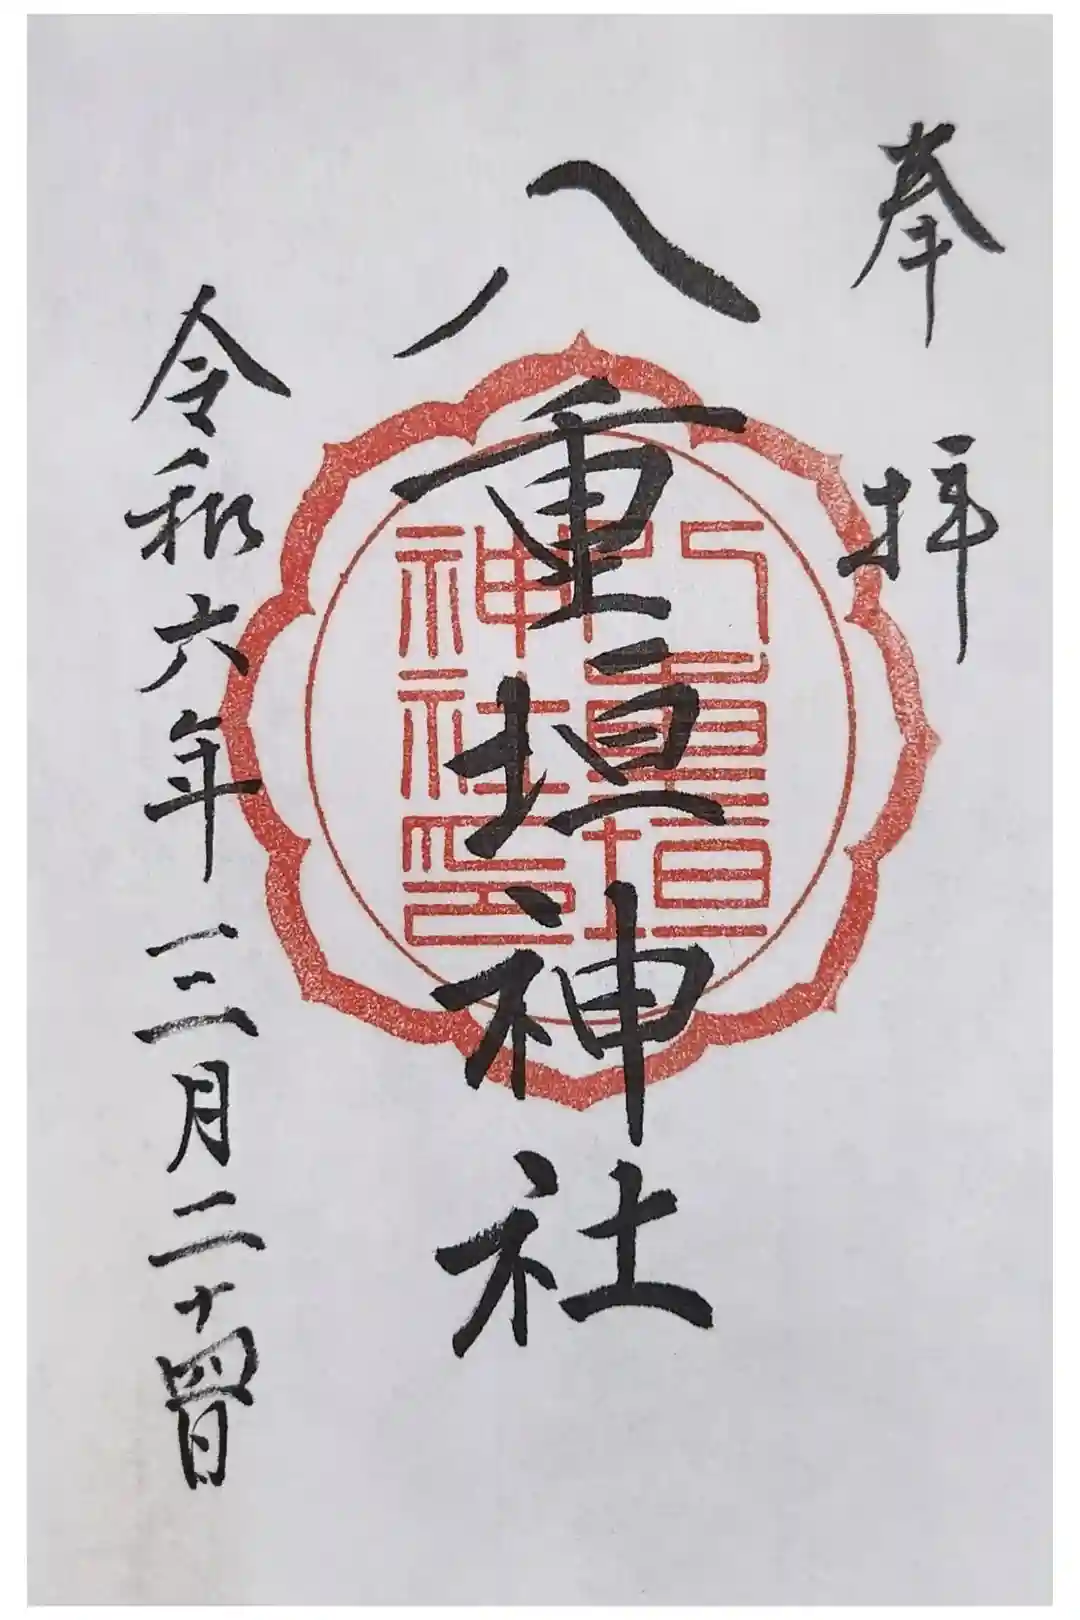 奉拝
八重垣神社
八重垣
神社印
令和六年三月二十四日